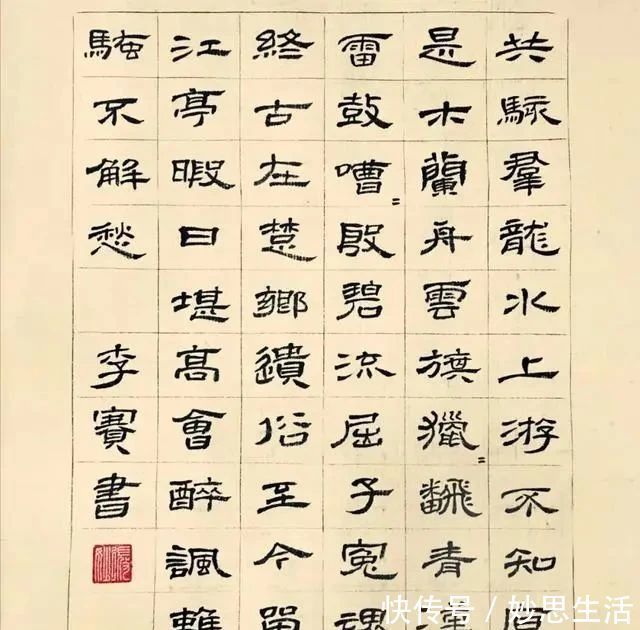 共駭羣龍水上游不知
是木蘭舟雲旗獵=飜青
雷鼓嘈=殷碧流屈子冤魂
終古在楚鄉遺俗至今
江亭暇日堪高會醉諷離
騷不解愁 李賽書
快传号 / 妙思生活